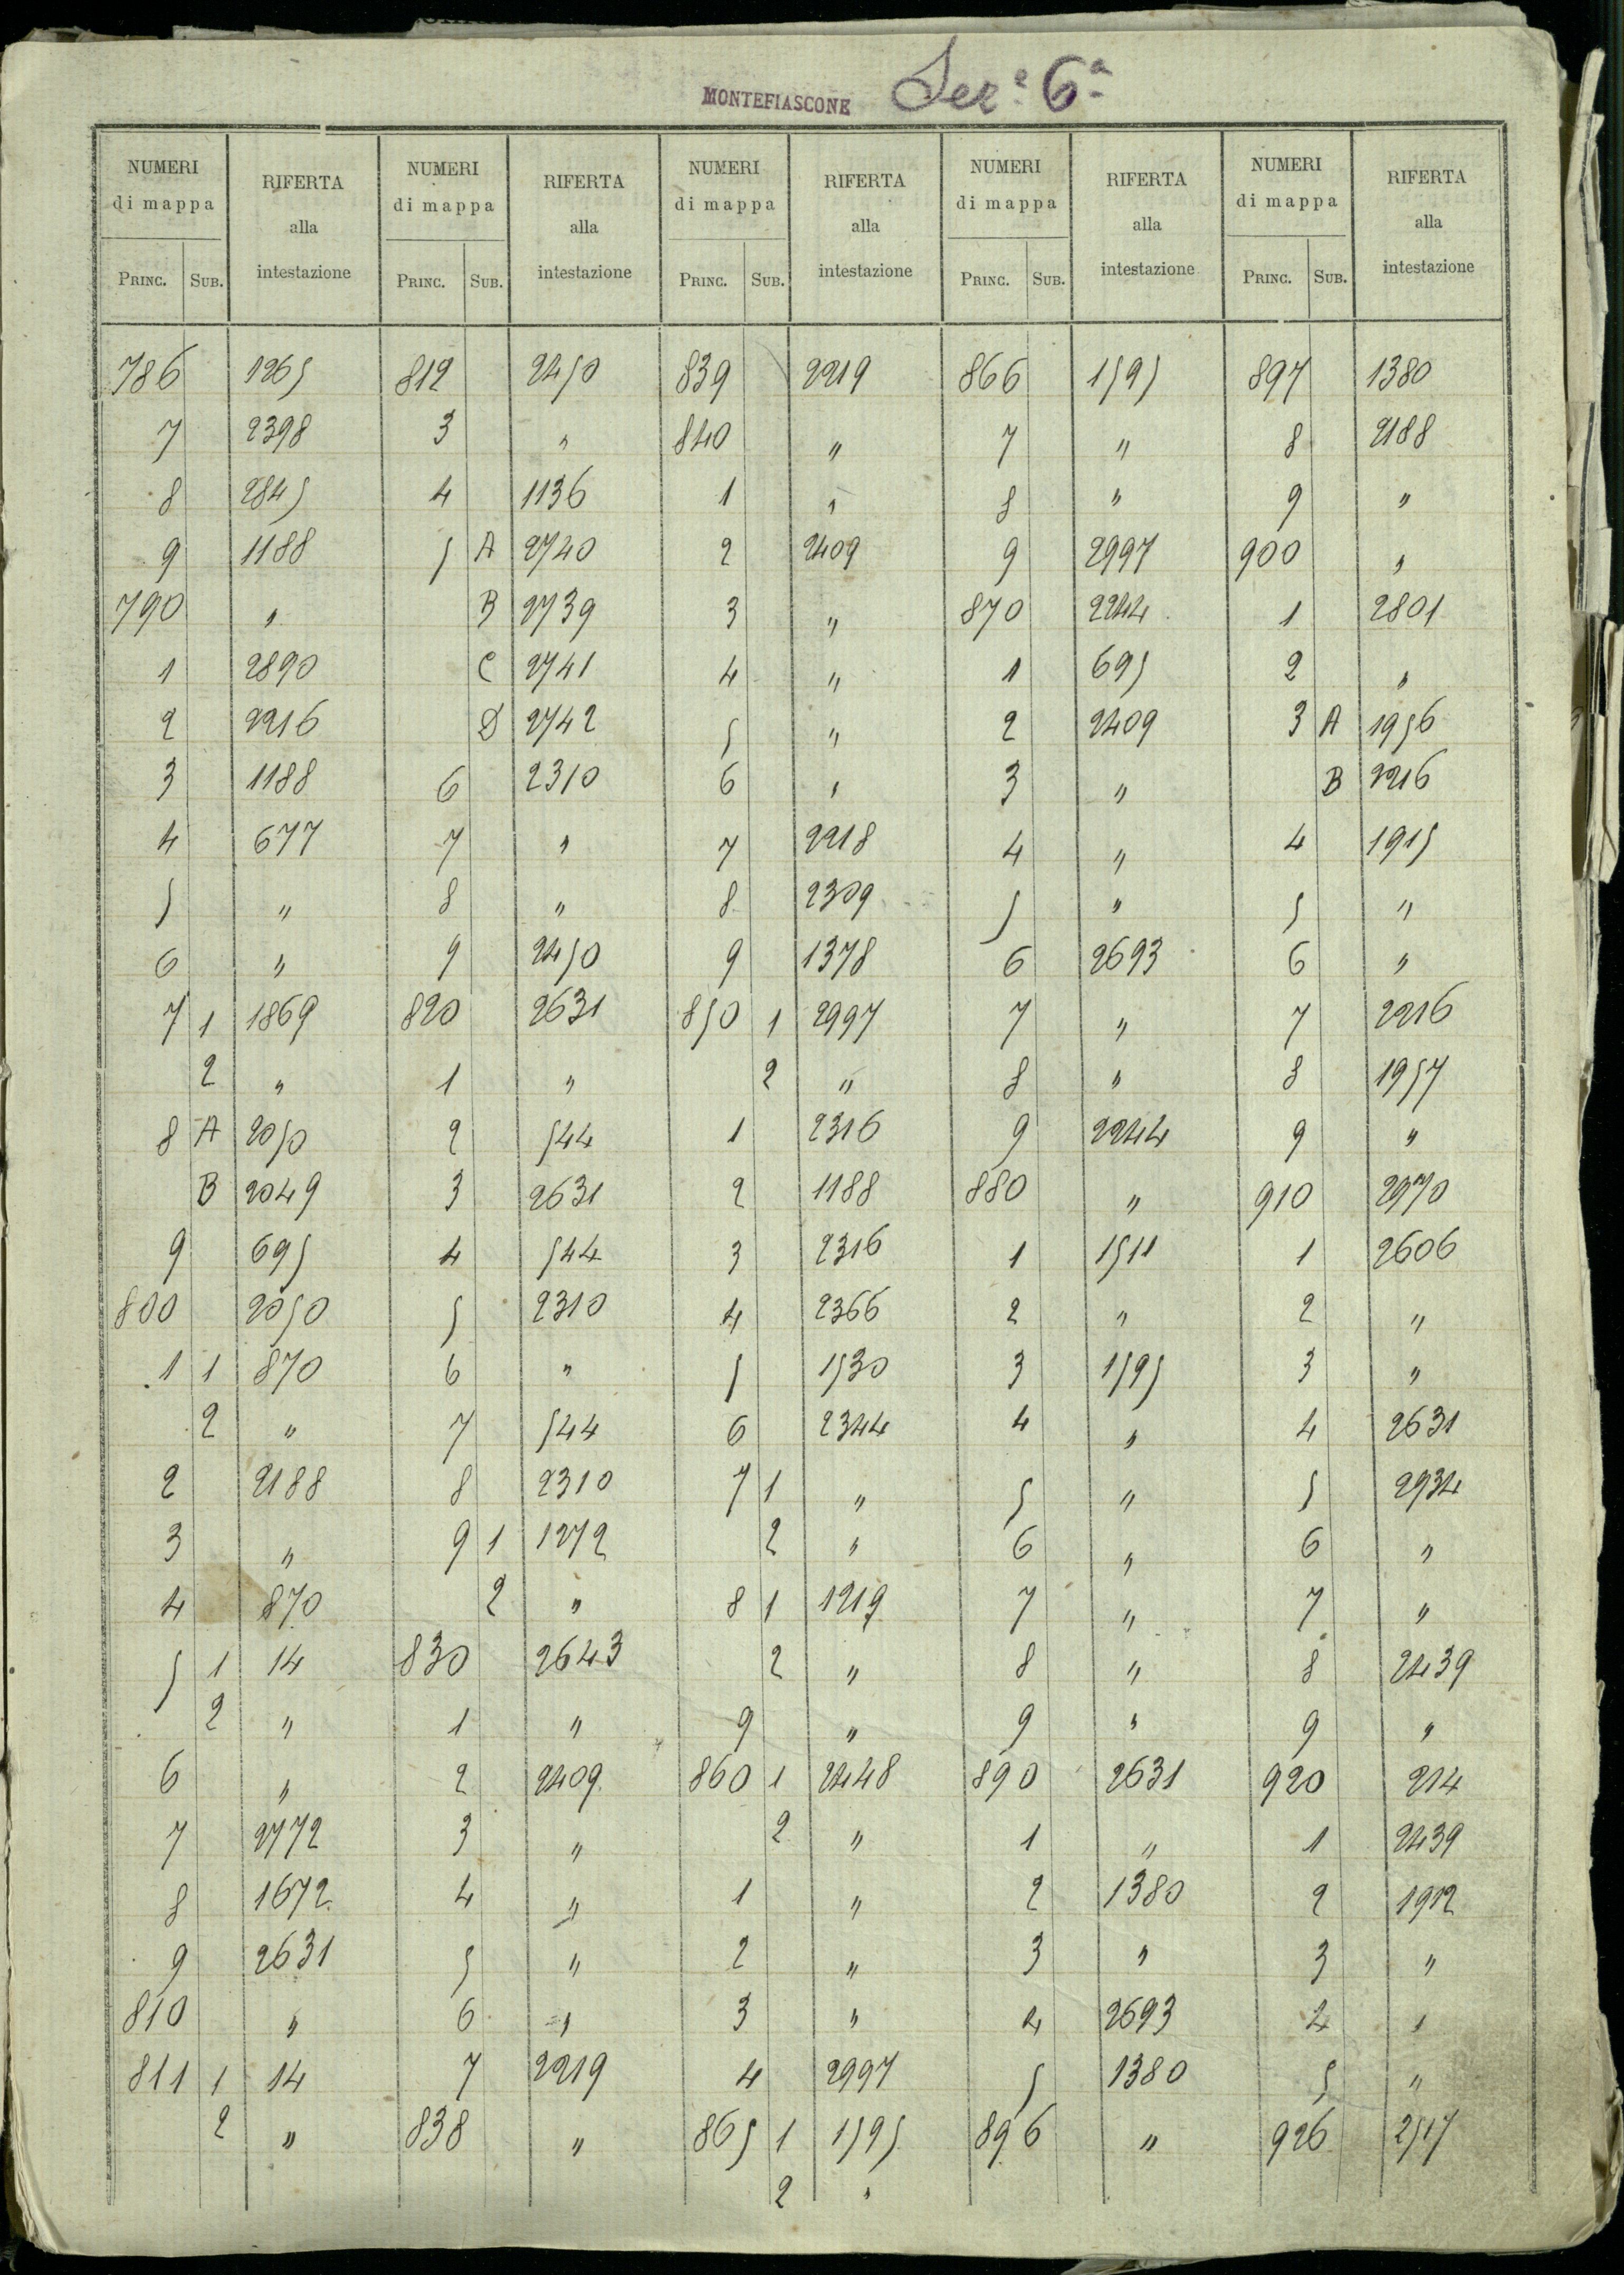 MONTEFIASCONE Sez.e 6a
NUMERI di mappa RIFERTA alla intestazione NUMERI di mappa RIFERTA alla intestazione NUMERI di mappa RIFERTA alla intestazione NUMERI di mappa RIFERTA alla intestazione NUMERI di mappa RIFERTA alla intestazione
PRINC. SUB. PRINC. SUB. PRINC. SUB. PRINC. SUB. PRINC. SUB.
786 1265 812 2450 839 2219 866 1595 897 1380
7 2398 3 " 840 " 7 " 8 2188
8 2845 4 1136 1 " 8 " 9 "
9 1188 5 A 2740 2 2409 9 2997 900 "
790 " B 2739 3 " 870 2244 1 2801
1 2890 C 2741 4 " 1 695 2 "
2 2216 D 2742 5 " 2 2409 3 A 1956
3 1188 6 2310 6 " 3 " B 2216
4 677 7 " 7 2218 4 " 4 1915
5 " 8 " 8 2309 5 " 5 "
6 " 9 2450 9 1378 6 2693 6 "
7 1 1869 820 2631 850 1 2997 7 " 7 2216
2 " 1 " 2 " 8 " 8 1957
8 A 2050 2 544 1 2316 9 2244 9 "
B 2049 3 2631 2 1188 880 " 910 2970
9 695 4 544 3 2316 1 1511 1 2606
800 2050 5 2310 4 2366 2 " 2 "
1 1 870 6 " 5 1530 3 1595 3 "
2 " 7 544 6 2344 4 " 4 2631
2 2188 8 2310 7 1 " 5 " 5 2934
3 " 9 1 1272 2 " 6 " 6 "
4 870 2 " 8 1 1219 7 " 7 "
5 1 14 830 2643 2 " 8 " 8 2439
2 " 1 " 9 " 9 " 9 "
6 " 2 2409 860 1 2448 890 2631 920 214
7 2772 3 " 2 " 1 " 1 2439
8 1672 4 " 1 " 2 1380 2 1912
9 2631 5 " 2 " 3 " 3 "
810 " 6 " 3 " 4 2693 4 "
811 1 14 7 2219 4 2997 5 1380 5 "
2 " 838 " 865 1 1595 896 " 926 2517
2 "